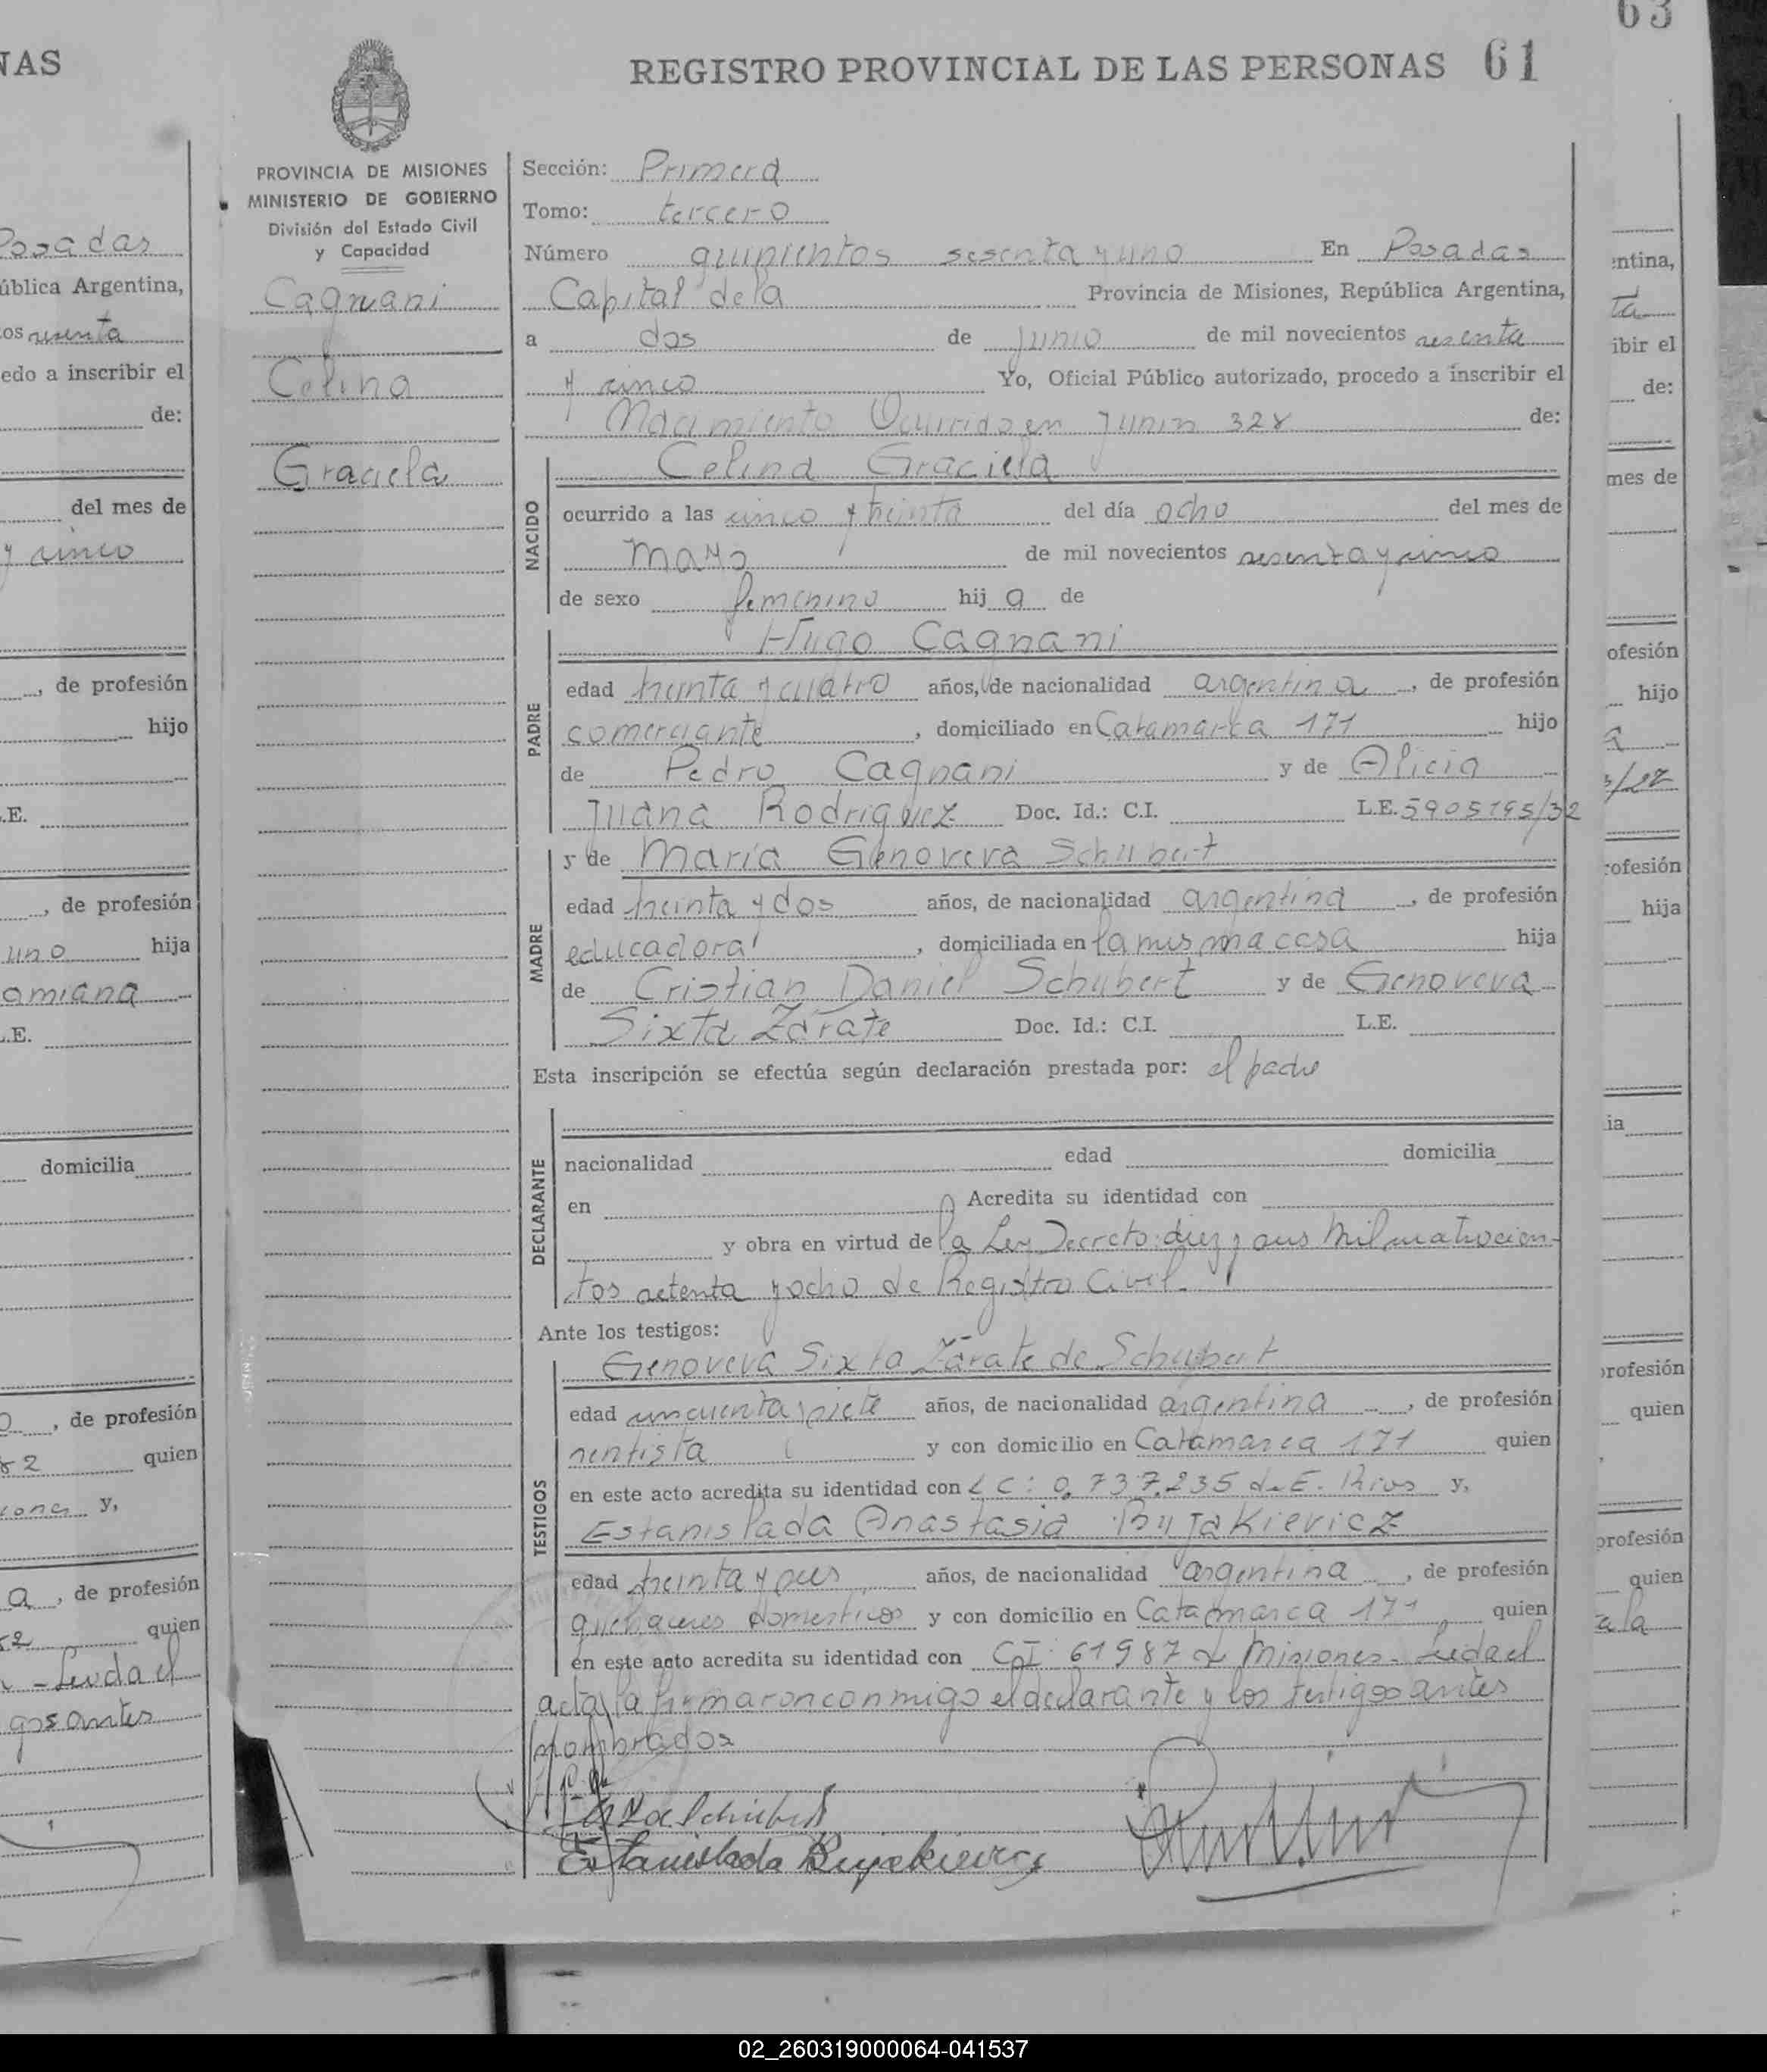 REGISTRO PROVINCIAL DE LAS PERSONAS 61
63
NAS
PROVINCIA DE MISIONES
MINISTERIO DE GOBIERNO
División del Estado Civil
y Capacidad
Cagnani
Celina
Graciela
Sección: Primera
Tomo: tercero
Número quinientos sesenta y uno En Posadas
Capital de la Provincia de Misiones, República Argentina,
a dos de junio de mil novecientos sesenta
y cinco Yo, Oficial Público autorizado, procedo a inscribir el
Nacimiento Ocurrido en Junin 328 de:
NACIDO
Celina Graciela
ocurrido a las cinco y treinta del día ocho del mes de
mayo de mil novecientos sesenta y cinco
de sexo femenino hij a de
PADRE
Hugo Cagnani
edad treinta y cuatro años, de nacionalidad argentina, de profesión
comerciante, domiciliado en Catamarca 171 hijo
de Pedro Cagnani y de Alicia
Juana Rodriguez Doc. Id.: C.I. L.E. 5905195/32
MADRE
y de Maria Genoveva Schubert
edad treinta y dos años, de nacionalidad argentina, de profesión
educadora, domiciliada en la misma casa hija
de Cristian Daniel Schubert y de Genoveva
Sixta Zárate Doc. Id.: C.I. L.E.
Esta inscripción se efectúa según declaración prestada por: el padre
DECLARANTE
nacionalidad edad domicilia
en Acredita su identidad con
y obra en virtud de la Ley Decreto: diez y seis Mil cuatrocien-
tos setenta y ocho de Registro Civil.
Ante los testigos:
TESTIGOS
Genoveva Sixta Zárate de Schubert
edad cincuenta y siete años, de nacionalidad argentina, de profesión
rentista y con domicilio en Catamarca 171 quien
en este acto acredita su identidad con LC: 0.737.235 de E. Rios y,
Estanislada Anastasia Bujakievicz
edad treinta y seis años, de nacionalidad argentina, de profesión
quehaceres domesticos y con domicilio en Catamarca 171 quien
en este acto acredita su identidad con C.I: 61987 de Misiones. Leida el
acta, la firmaron conmigo el declarante y los testigos antes
nombrados
Estanislada Bujakievicz
Posadas
ública Argentina,
os sesenta
edo a inscribir el
de:
del mes de
y cinco
, de profesión
hijo
.E.
, de profesión
uno hija
amiana
.E.
domicilia
, de profesión
quien
y,
a, de profesión
quien
- Leida el
gos antes
entina,
ta
ibir el
de:
mes de
ofesión
hijo
rofesión
hija
ia
profesión
quien
profesión
quien
ala
02_260319000064-041537